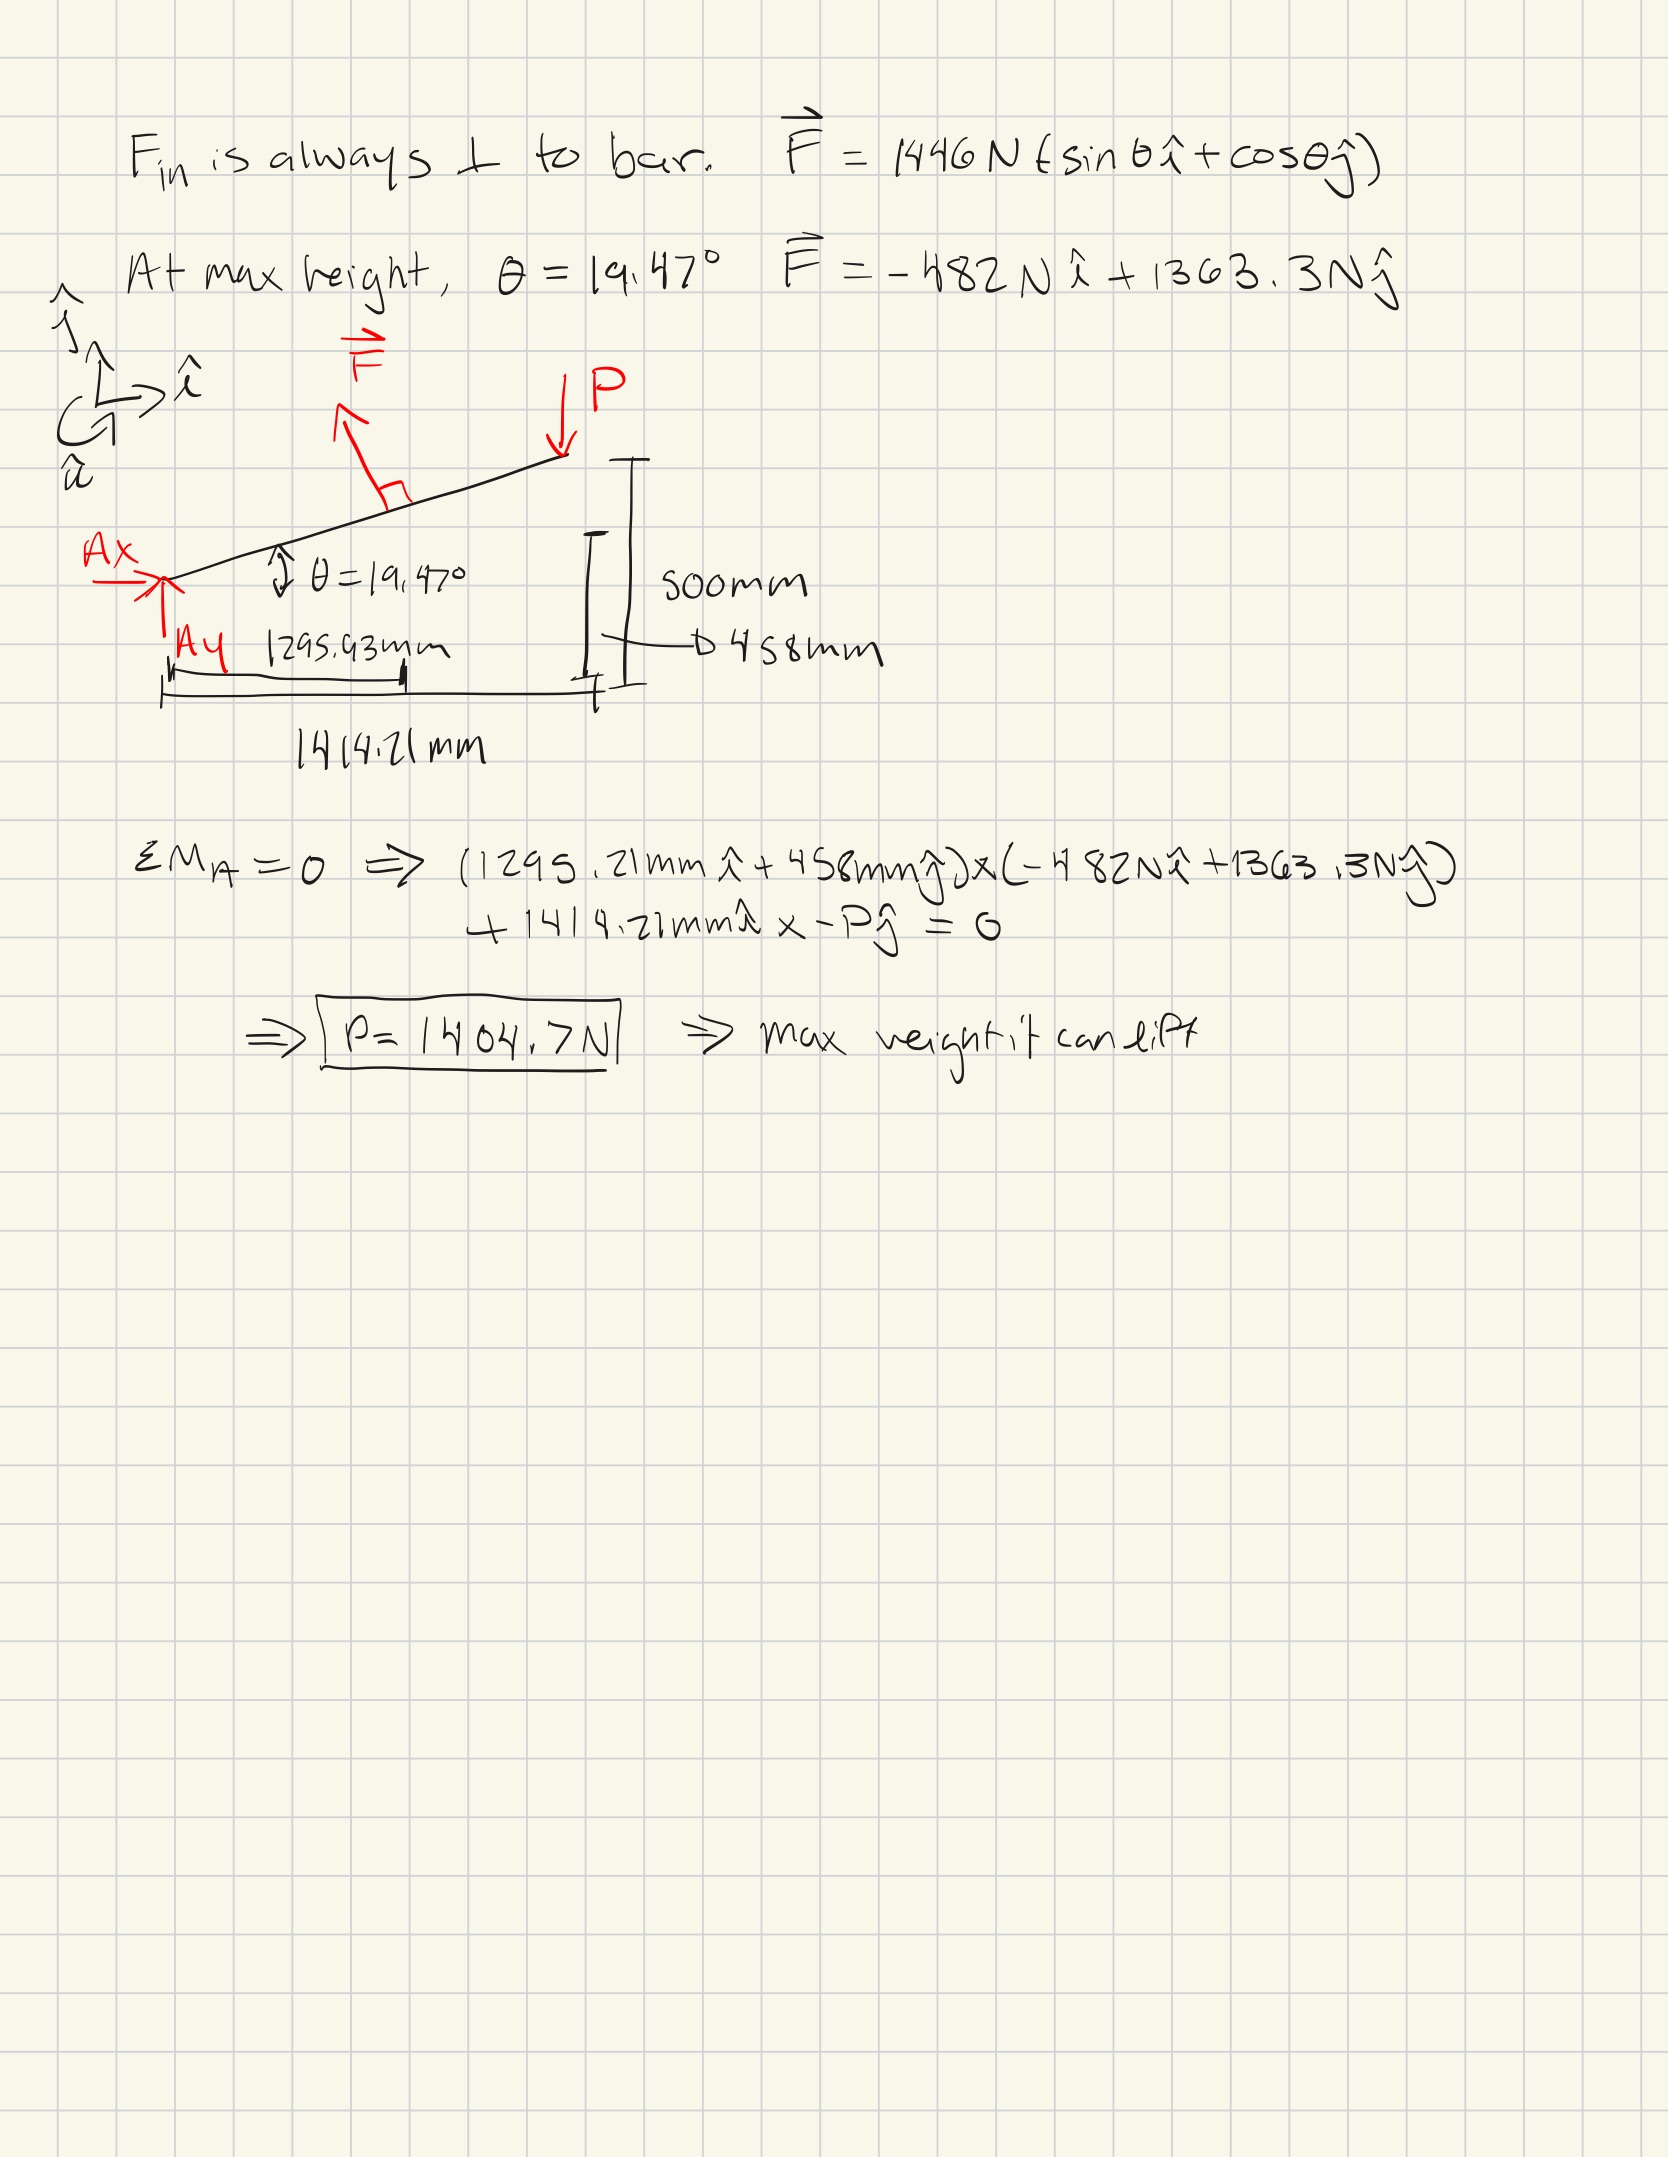 Fin is always ⊥ to bar. F⃗ = 1446 N (-sin θ î + cos θ ĵ)
At max height, θ = 19.47° F⃗ = -482 N î + 1363.3 N ĵ
ĵ
î
â
F⃗
P
Ax
θ = 19.47°
500mm
Ay
1295.93mm
458mm
1414.21mm
ΣM_A = 0 ⇒ (1295.21mm î + 458mm ĵ) x (-482N î + 1363.3N ĵ)
+ 1414.21mm î x -P ĵ = 0
⇒ P = 1404.7N ⇒ max weight it can lift